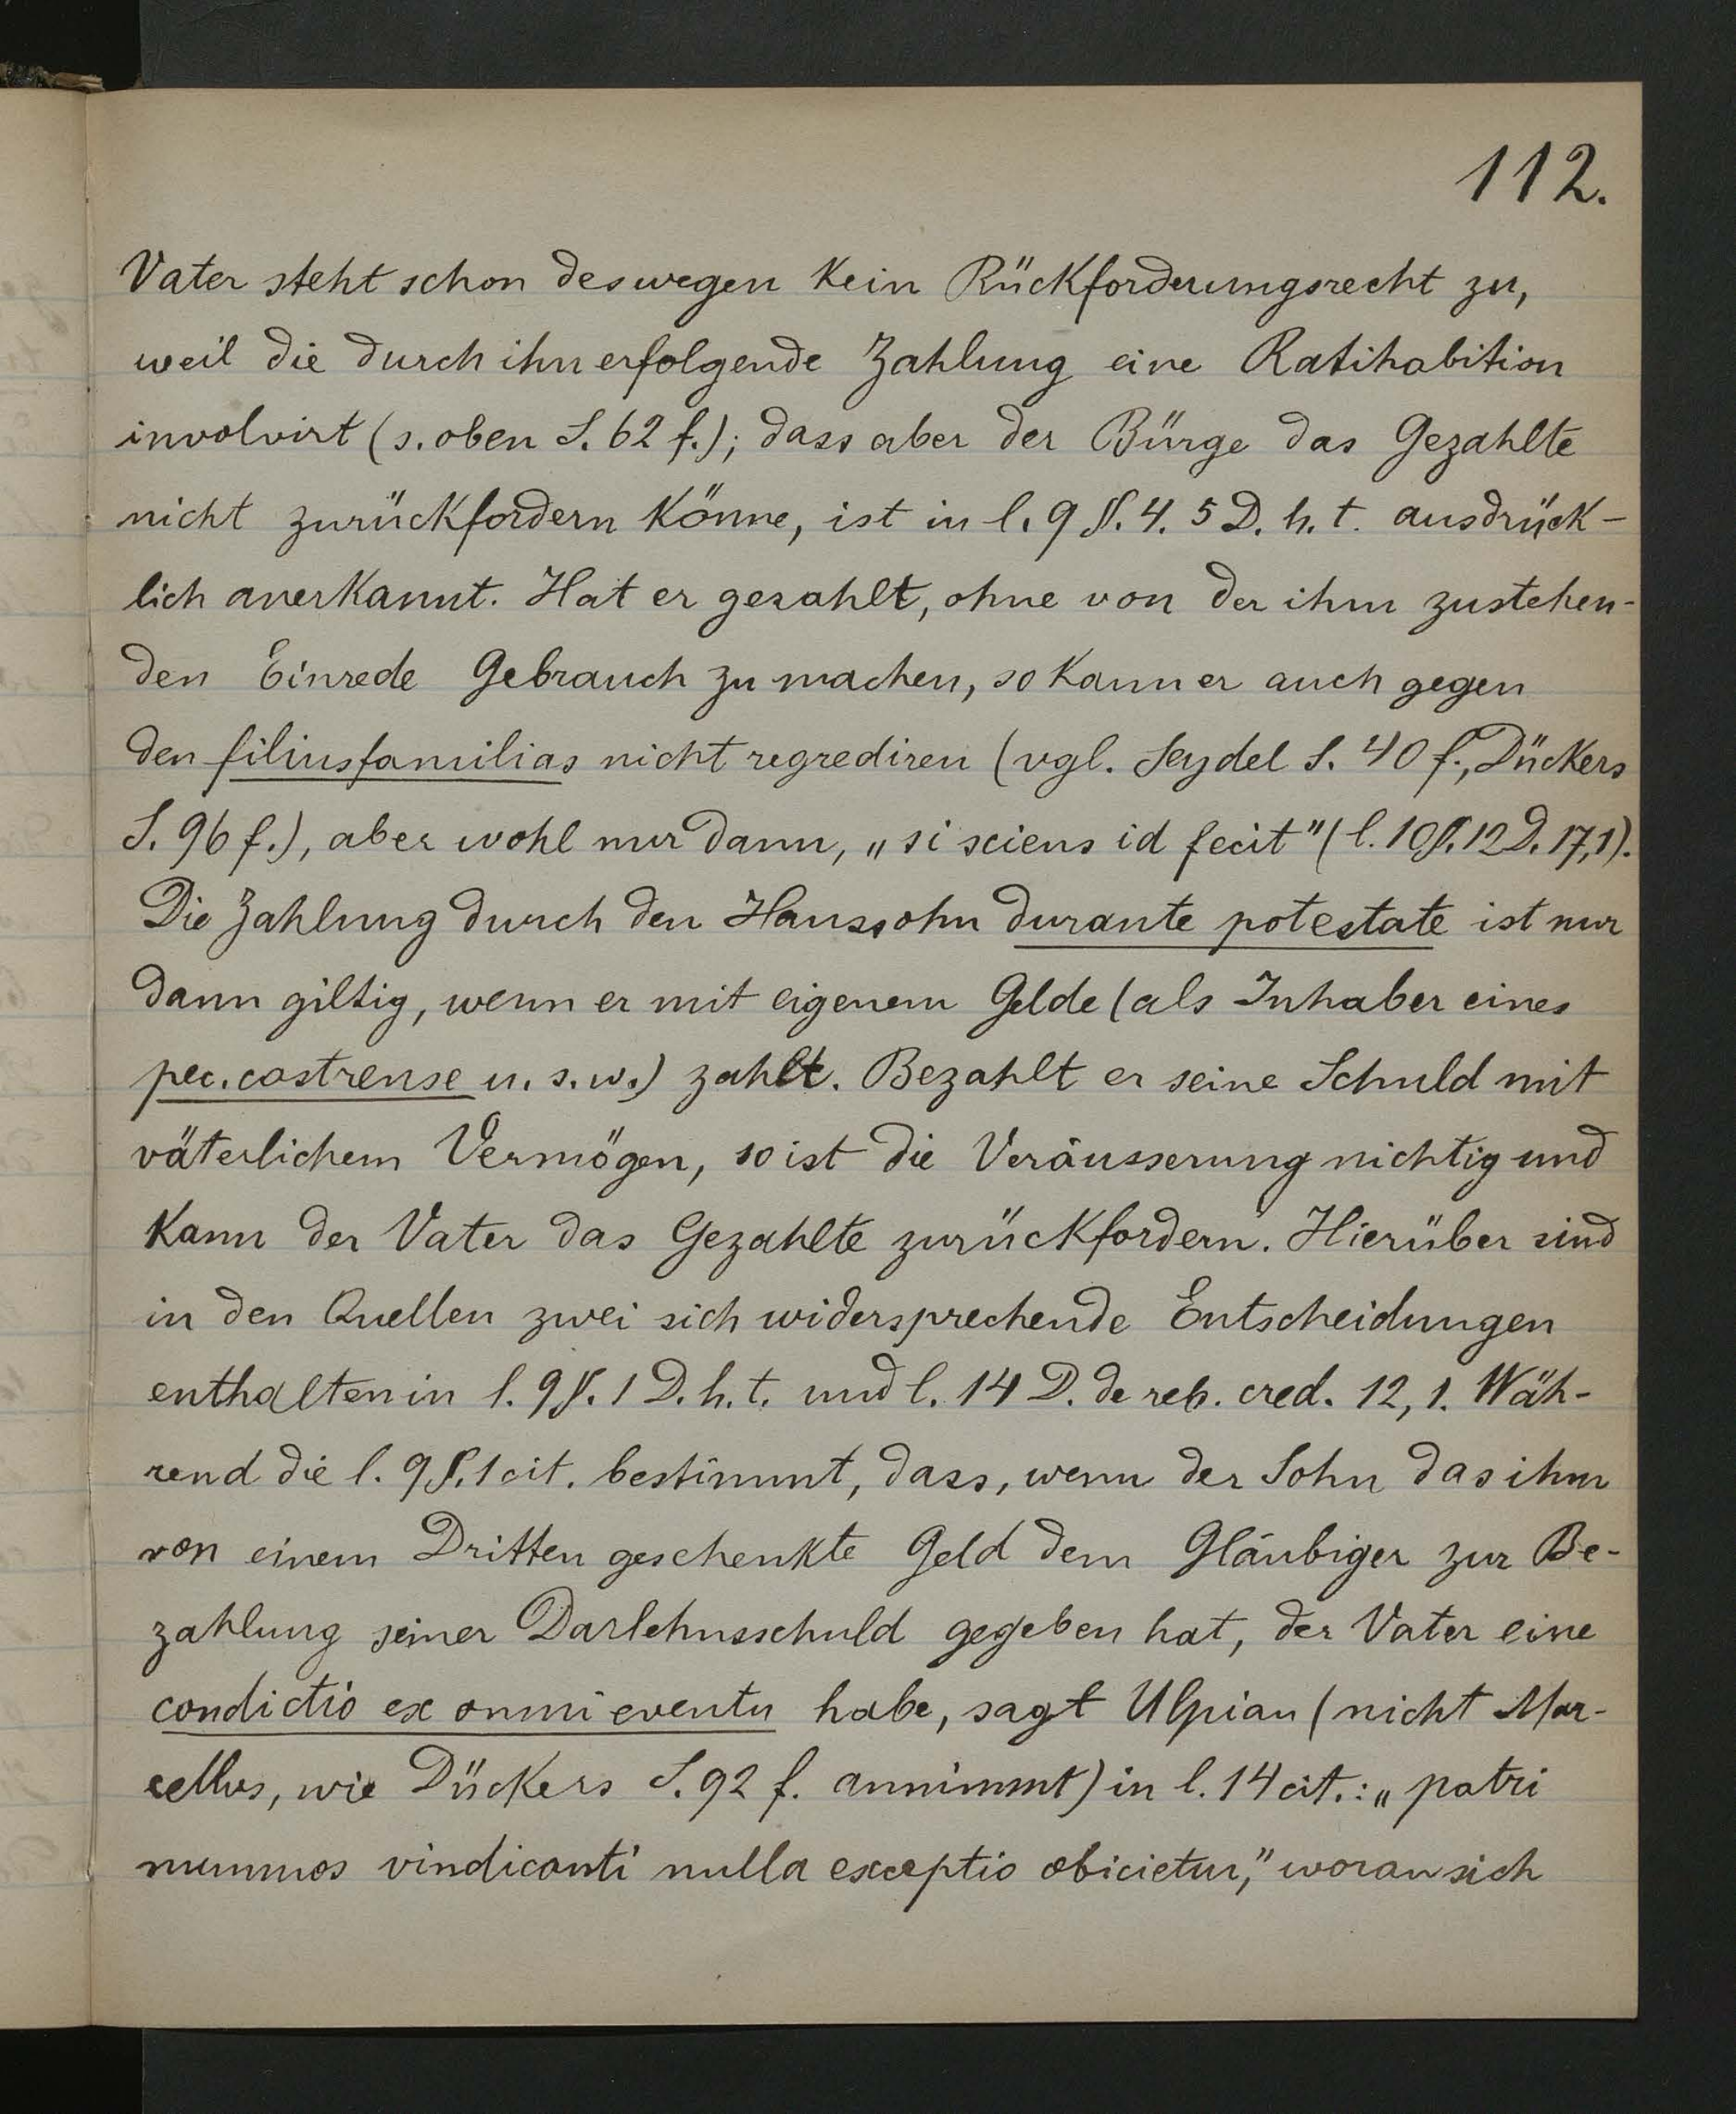 112.
Vater steht schon deswegen kein Rückforderungsrecht zu,
weil die durch ihn erfolgende Zahlung eine Ratihabition
involvirt (s. oben S. 62 f.); dass aber der Bürge das Gezahlte
nicht zurückfordern könne, ist in l. 9 §. 4. 5 D. h. t. ausdrück-
lich anerkannt. Hat er gezahlt, ohne von der ihm zustehen-
den Einrede Gebrauch zu machen, so kann er auch gegen
den filiusfamilias nicht regrediren (vgl. Seydel S. 40 f., Dückers
S. 96 f.), aber wohl nur dann, „si sciens id fecit" (l. 10 §. 12 D. 17,1).
Die Zahlung durch den Haussohn durante potestate ist nur
dann giltig, wenn er mit eigenem Gelde (als Inhaber eines
pec. castrense u. s. w.) zahlt. Bezahlt er seine Schuld mit
väterlichem Vermögen, so ist die Veräusserung nichtig und
kann der Vater das Gezahlte zurückfordern. Hierüber sind
in den Quellen zwei sich widersprechende Entscheidungen
enthalten in l. 9 §. 1 D. h. t. und l. 14 D. de reb. cred. 12, 1. Wäh-
rend die l. 9 §. 1 cit. bestimmt, dass, wenn der Sohn das ihm
von einem Dritten geschenkte Geld dem Gläubiger zur Be-
zahlung seiner Darlehnsschuld gegeben hat, der Vater eine
condictio ex omni eventu habe, sagt Ulpian (nicht Mar-
cellus, wie Dückers S. 92 f. annimmt) in l. 14 cit.: „patri
nummos vindicanti nulla exceptio obicietur," woran sich